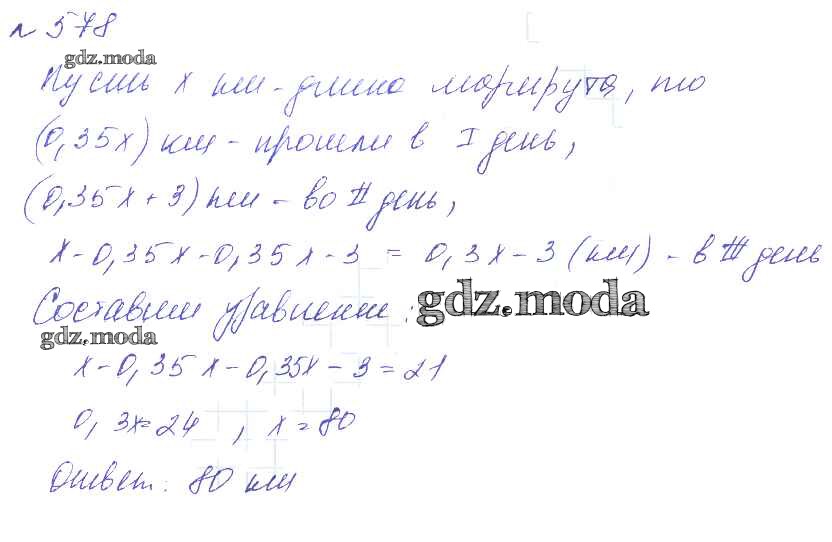 № 578
gdz.moda
Пусть x км - длина маршрута, то
(0,35x) км - прошли в I день,
(0,35x + 3) км - во II день,
x - 0,35x - 0,35x - 3 = 0,3x - 3 (км) - в III день
Составим уравнение: gdz.moda
gdz.moda
x - 0,35x - 0,35x - 3 = 21
0,3x = 24 , x = 80
Ответ: 80 км